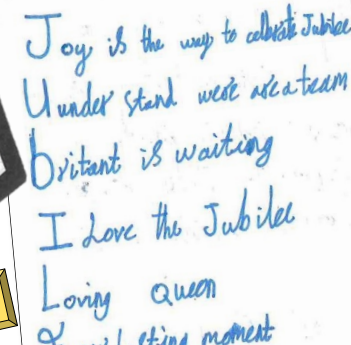 Joy is the way to celbrate Jubilee
Uunder stand we're are a team
britant is waiting
I Love the Jubilee
Loving Queen
moment